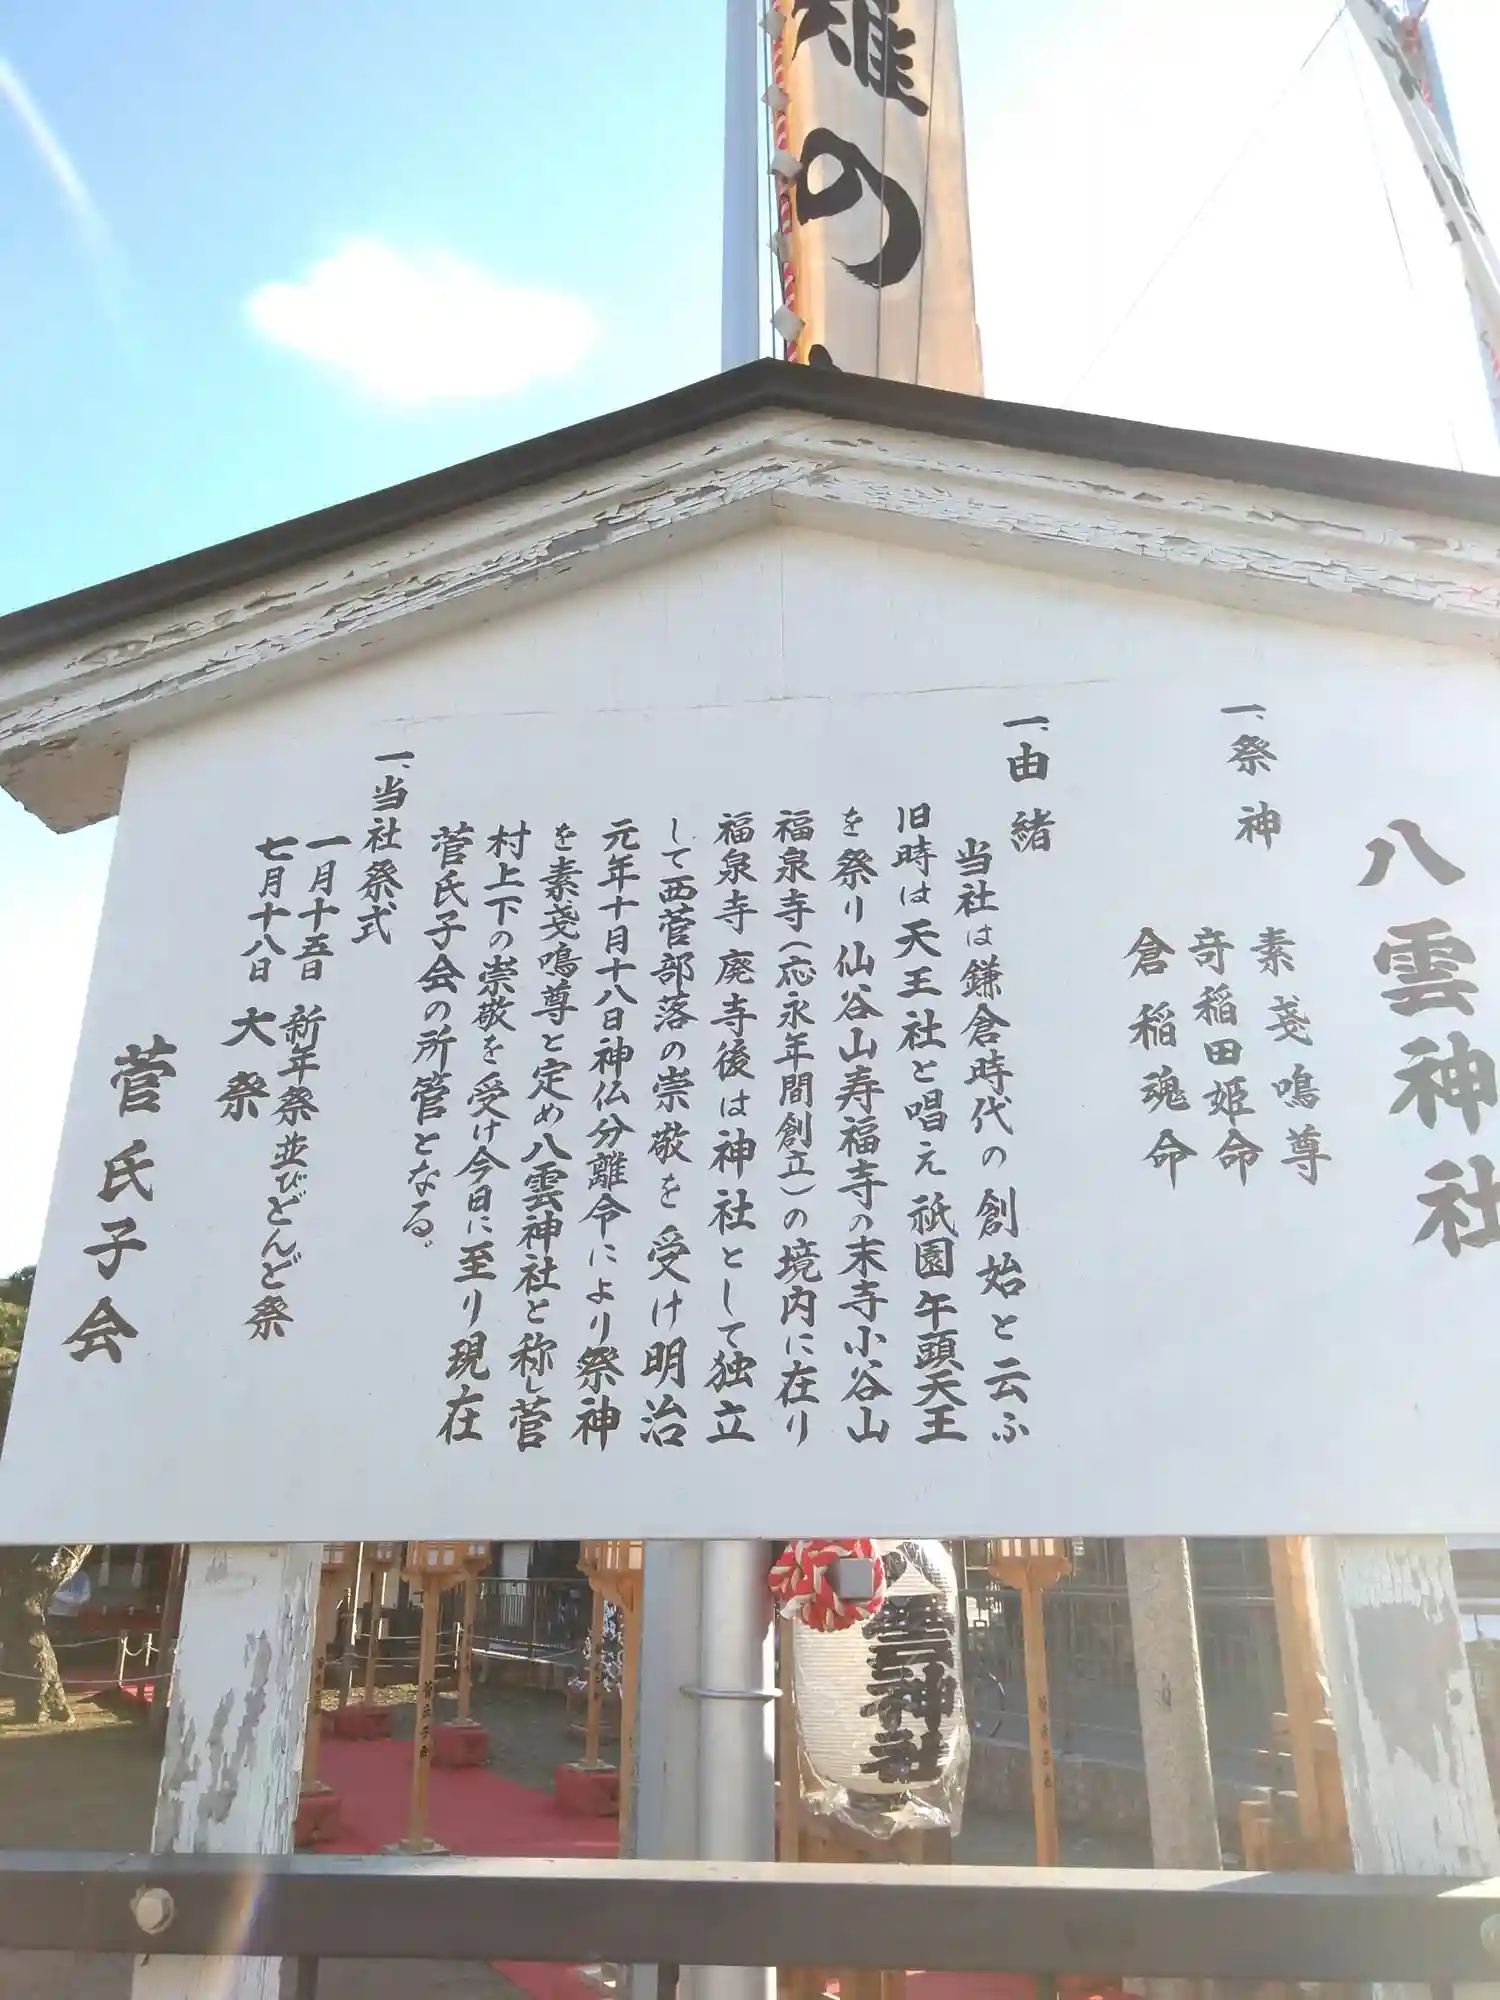 八雲神社
一、祭神
素戔鳴尊
奇稲田姫命
倉稲魂命
一、由緒
当社は鎌倉時代の創始と云ふ
旧時は天王社と唱え祇園午頭天王
を祭り仙谷山寿福寺の末寺小谷山
福泉寺(応永年間創立)の境内に在り
福泉寺廃寺後は神社として独立
して西菅部落の崇敬を受け明治
元年十月十八日神仏分離令により祭神
を素戔鳴尊と定め八雲神社と称し菅
村上下の崇敬を受け今日に至り現在
菅氏子会の所管となる。
一、当社祭式
一月十五日 新年祭並びどんど祭
七月十八日 大祭
菅氏子会
の
雲神社